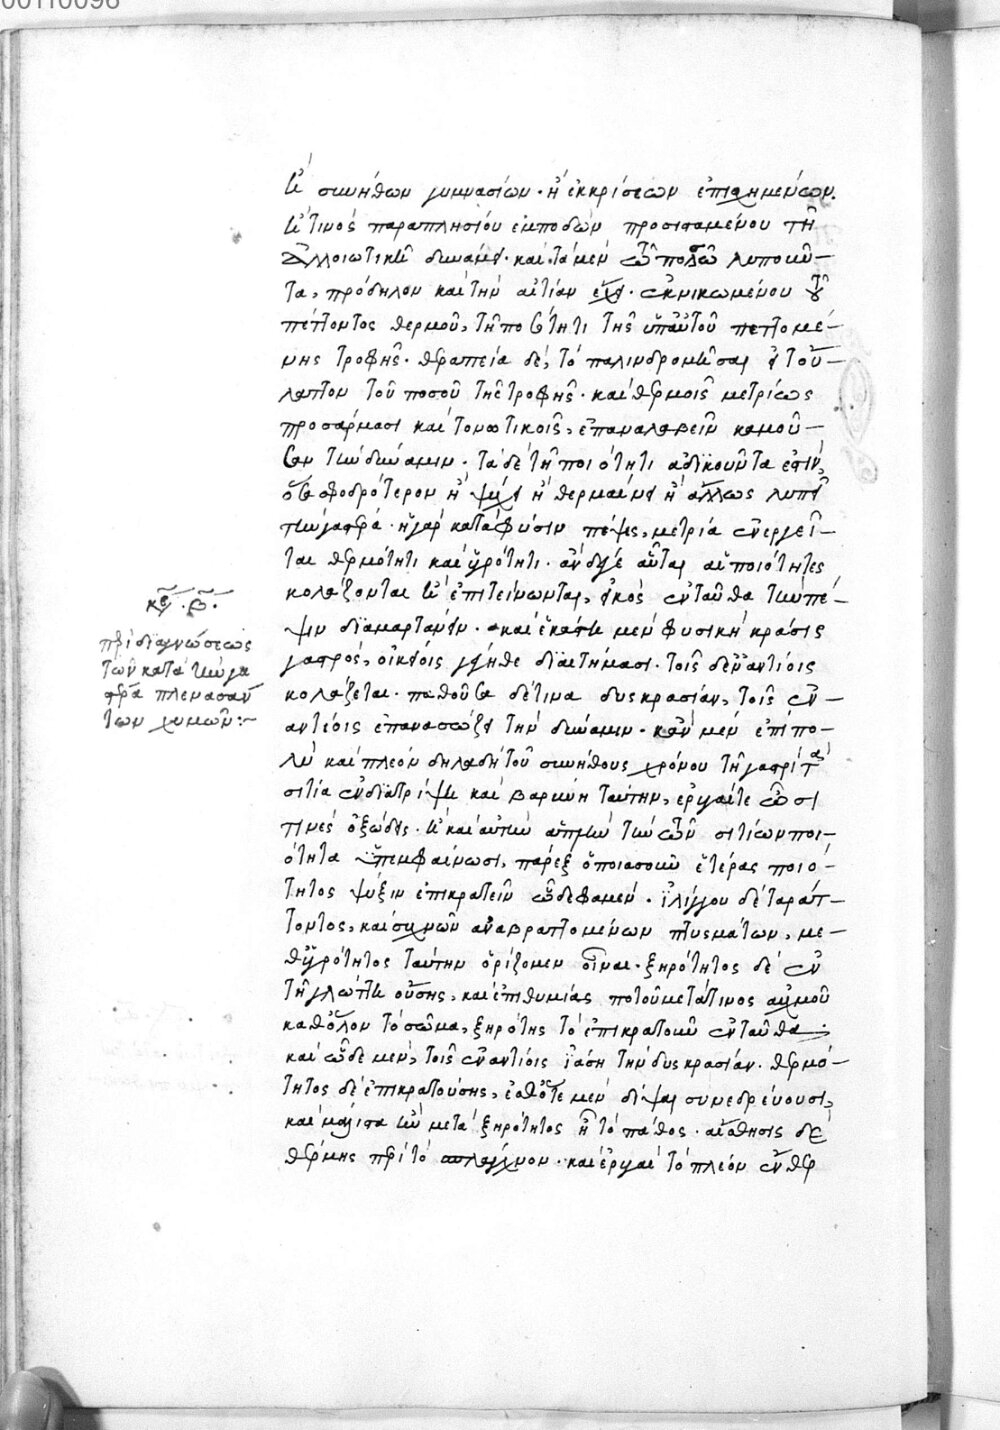 00110096
ἢ συνήθων γυμνασίων. ἢ ἐκκρίσεων ἐπισχημένων.
ἤ τινος παραπλησίου ἐμποδὼν προσισταμένου τῇ
ἀλλοιωτικῇ δυνάμει. καὶ τὰ μὲν τῷ ποσῷ λυποῦν–
τα, πρόδηλον καὶ τὴν αἰτίαν ἔχει. ἐκνικωμένου τοῦ
πέττοντος θερμοῦ, τῇ ποσότητι τῆς ὑπ' αὐτοῦ πεττομέ–
νης τροφῆς. θεραπεία δέ, τὸ παλινδρομῆσαι ἐπὶ τοὔ–
λαττον τοῦ ποσοῦ τῆς τροφῆς. καὶ θερμοῖς μετρίως
προσάρμασι καὶ τονωτικοῖς, ἐπαναλαβεῖν καμοῦ–
σαν τὴν δύναμιν. τὰ δὲ τῇ ποιότητι ἀδικοῦντα ἐστὶν,
ὅσα σφοδρότερον ἢ ψύχει ἢ θερμαίνει ἢ ἄλλως λυπεῖ
τὴν γαστέρα. ἡ γὰρ κατὰ φύσιν πέψις, μετρία ἐνεργεῖ–
ται θερμότητι καὶ ὑγρότητι. ἂν δέ γε αὗται αἱ ποιότητες
κολάζονται ἢ ἐπιτείνωνται, εἰκὸς ἐνταῦθα τὴν πέ–
ψιν διαμαρτάνειν. καὶ ἑκάστη μὲν φυσικὴ κρᾶσις
γαστρός, οἰκείοις γήθει διαιτήμασι. τοῖς δ' ἐναντίοις
κολάζεται. παθοῦσα δέ τινα δυσκρασίαν, τοῖς ἐν–
αντίοις ἐπανασώζει τὴν δύναμιν. κἂν μὲν ἐπὶ πο–
λὺ καὶ πλέον δηλαδὴ τοῦ συνήθους χρόνου τῇ γαστρὶ τὰ
σιτία ἐνδιατρίψῃ καὶ βαρύνῃ ταύτην, ἐρυγαί τε ὦσί
τινες ὀξώδεις. ἢ καὶ αὐτὴν ἁπλῆν τὴν τῶν σιτίων ποι–
ότητα ὑπεμφαίνωσι, πάρεξ ὁποιασοῦν ἑτέρας ποιό–
τητος ψύξιν ἐπικρατεῖν ὧδε φαμέν. ἰλίγγου δὲ ταράτ–
τοντος, καὶ συχνῶν ἀναβραττομένων πτυσμάτων, με–
θ' ὑγρότητος ταύτην ὁρίζομεν εἶναι. ξηρότητος δὲ ἐν
τῇ γλώττῃ οὔσης, καὶ ἐπιθυμίας ποτοῦ μετά τινος αὐχμοῦ
καθ' ὅλον τὸ σῶμα, ξηρότης τὸ ἐπικρατοῦν ἐνταῦθα.
καὶ ὧδε μὲν, τοῖς ἐναντίοις ἰάσῃ τὴν δυσκρασίαν. θερμό–
τητος δὲ ἐπικρατούσης, ἔσθ' ὅτε μὲν δίψαι συνεδρεύουσι,
καὶ μάλιστα ἢν μετὰ ξηρότητος ᾖ τὸ πάθος. αἴσθησις δὲ
θέρμης περὶ τὸ σπλάγχνον. καὶ ἐρυγαὶ τὸ πλέον ἐν θερ
περὶ διαγνώσεως
τῶν κατὰ τὴν γα
στέρα πλεονασάν
των χυμῶν:~